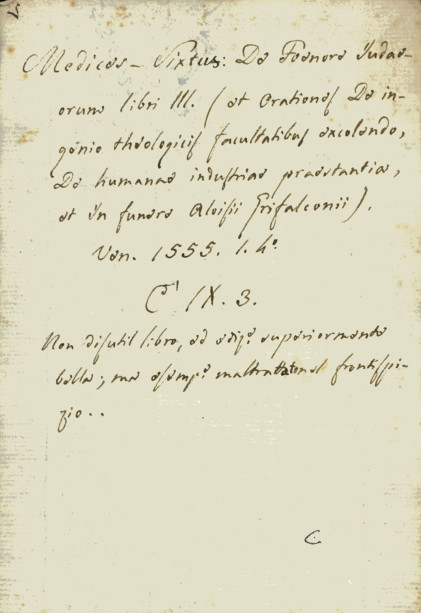 Medices - Sixtus: De Foenore Judae-
orum libri III. (et Orationes De in-
genio theologicis facultatibus excolendo,
De humanae industriae praestantia,
et In funere Aloisii Trifalconii).
Ven. 1555. 1. 4.º
IX. 3.
Non disutil libro, ed ediz.e superiormente
bella; ma esemp.e maltrattato nel frontispi-
zio..
C.